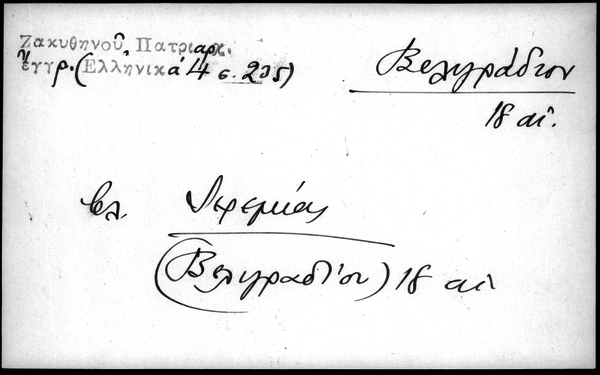 Ζακυθηνοῦ, Πατριαρχ.
ἔγγρ. (Ἑλληνικά 4 σ. 235)
Βελιγράδιον
18 αἰ.
βλ. Ἰερεμίας
(Βελιγραδίου) 18 αἰ